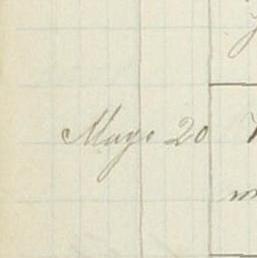 Mayo 20